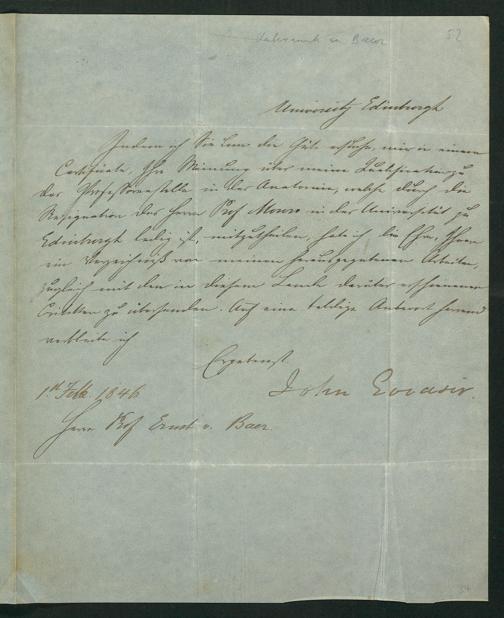 52
University Edinburgh
Indem ich Sie um die Güte ersuche, mir in einem
Certificate, Ihre Meinung über meine Qualification zu
der Professorstelle in der Anatomie, welche durch die
Resignation des Herrn Prof Monro in der Universität zu
Edinburgh ledig ist, mitzutheilen, habe ich die Ehre, Ihnen
ein Verzeichniß von meinen herausgegebenen Arbeiten,
zugleich mit den in diesem Lande darüber erschienenen
Critiken zu übersenden. Auf eine baldige Antwort hoffend
verbleibe ich
Ergebenst
1st Feb. 1846 John
Herrn Prof Ernst v. Baer.